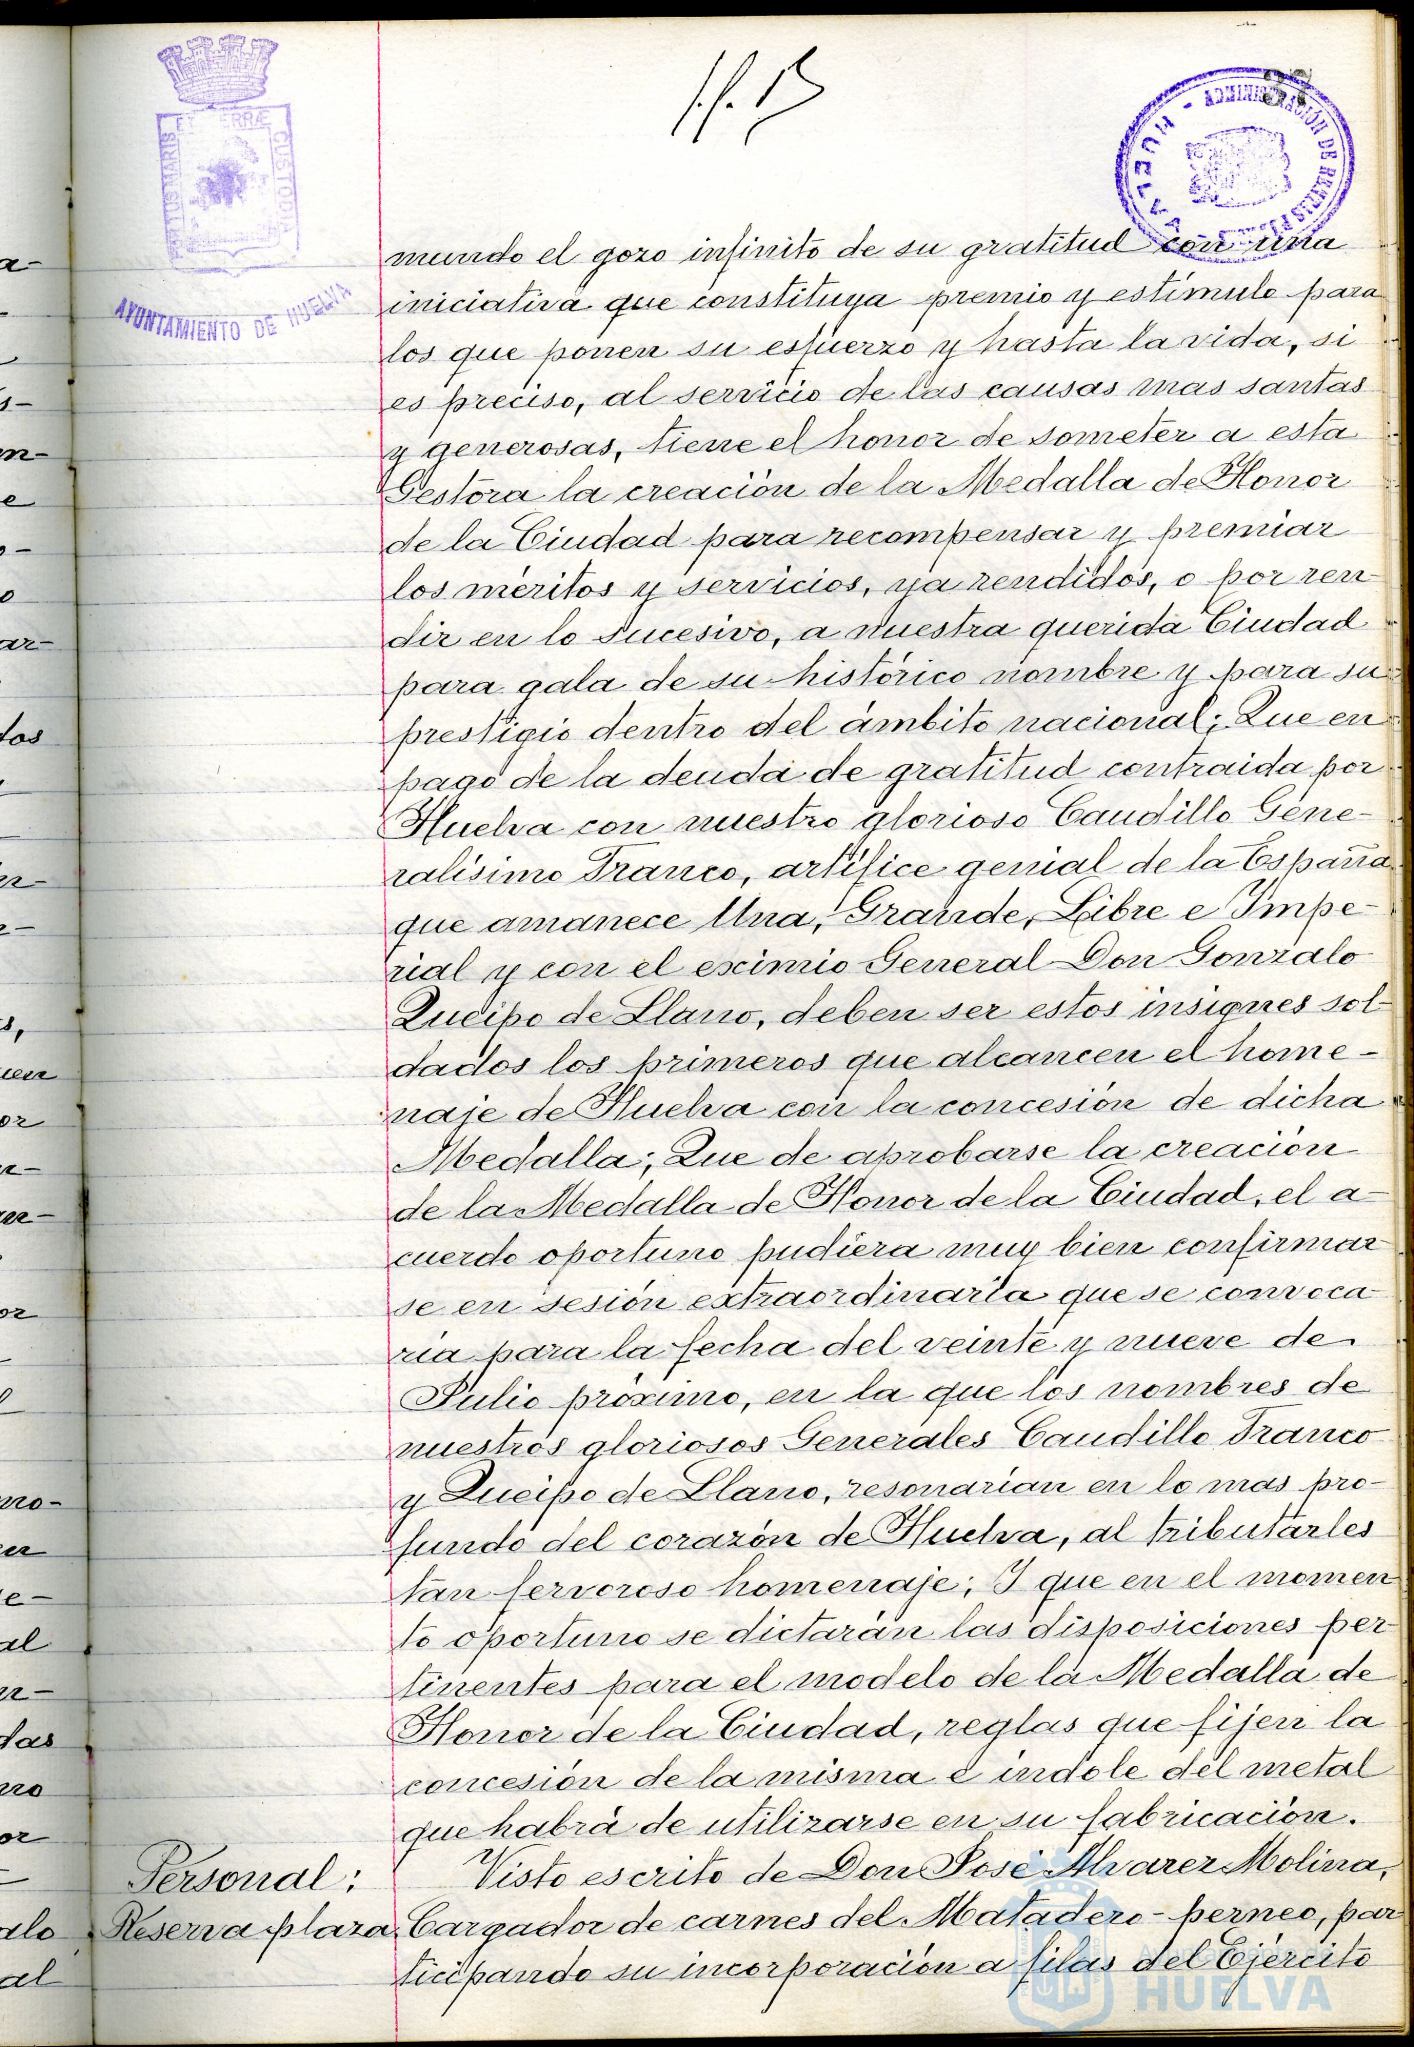 AYUNTAMIENTO DE HUELVA
PORTUS MARIS ET TERRÆ CUSTODIA
ADMINISTRACIÓN DE RENTAS
HUELVA
37
mundo el gozo infinito de su gratitud con una
iniciativa que constituya premio y estímulo para
los que ponen su esfuerzo y hasta la vida, si
es preciso, al servicio de las causas mas santas
y generosas, tiene el honor de someter a esta
Gestora la creación de la Medalla de Honor
de la Ciudad para recompensar y premiar
los méritos y servicios, ya rendidos, o por ren
dir en lo sucesivo, a nuestra querida Ciudad
para gala de su histórico nombre y para su
prestigio dentro del ámbito nacional; Que en
pago de la deuda de gratitud contraida por
Huelva con nuestro glorioso Caudillo Gene-
ralísimo Franco, artífice genial de la España
que amanece Una, Grande, Libre e Impe-
rial y con el eximio General Don Gonzalo
Queipo de Llano, deben ser estos insignes sol-
dados los primeros que alcancen el home-
naje de Huelva con la concesión de dicha
Medalla; Que de aprobarse la creación
de la Medalla de Honor de la Ciudad, el a-
cuerdo oportuno pudiera muy bien confirmar
se en sesión extraordinaria que se convoca
ria para la fecha del veinte y nueve de
Julio próximo, en la que los nombres de
nuestros gloriosos Generales Caudillo Franco
y Queipo de Llano, resonarían en lo mas pro-
fundo del corazón de Huelva, al tributarles
tan fervoroso homenaje; Y que en el momen
to oportuno se dictarán las disposiciones per-
tinentes para el modelo de la Medalla de
Honor de la Ciudad, reglas que fijen la
concesión de la misma e indole del metal
que habrá de utilizarse en su fabricación.
Personal: Visto escrito de Don José Alvarez Molina,
Reserva plaza Cargador de carnes del Matadero-perneo, par
ticipando su incorporación a filas del Ejército
Ayuntamiento de
HUELVA